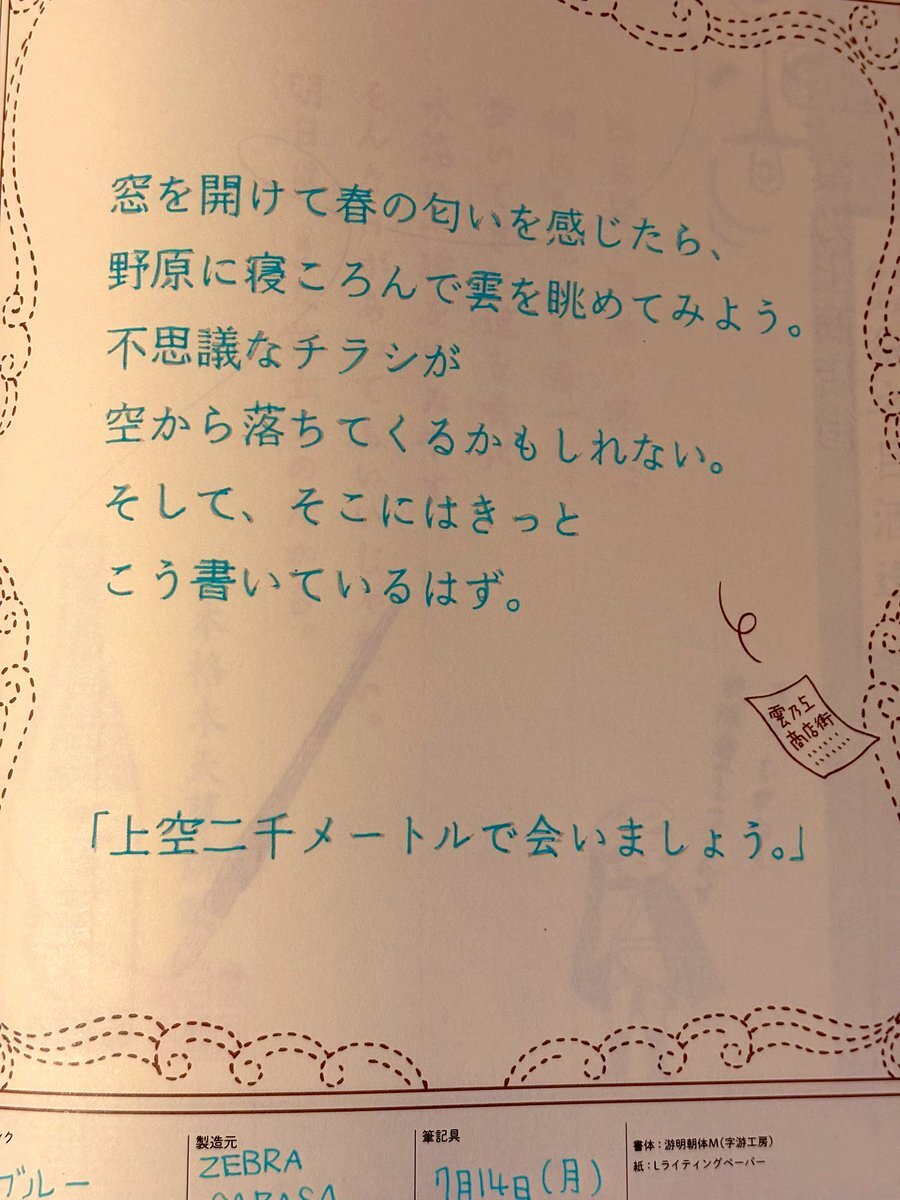 窓を開けて春の匂いを感じたら、
野原に寝ころんで雲を眺めてみよう。
不思議なチラシが
空から落ちてくるかもしれない。
そして、そこにはきっと
こう書いているはず。
雲乃上
商店街
「上空二千メートルで会いましょう。」
ク
ブルー
製造元
ZEBRA
SARASA
筆記具
7月14日(月)
書体:游明朝体M(字游工房)
紙:Lライティングペーパー